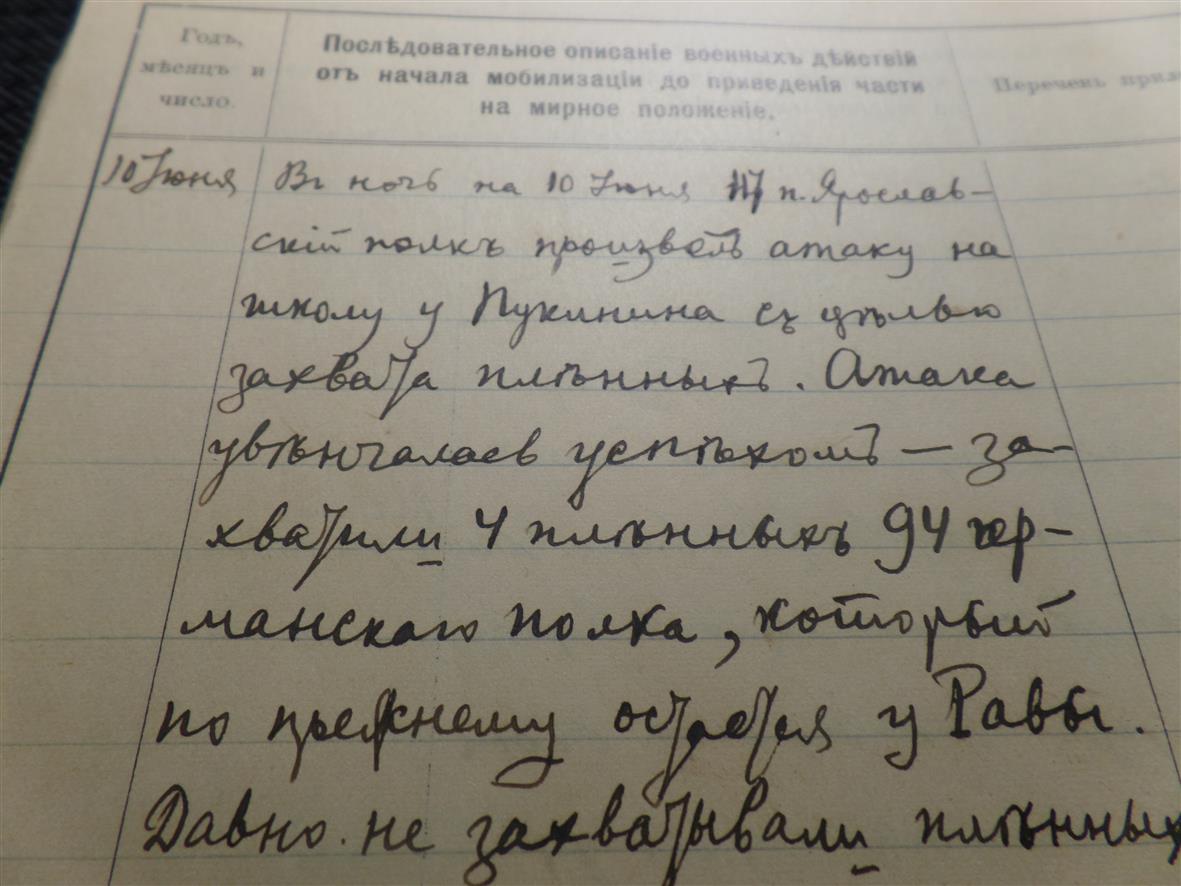 Годъ,
мѣсяцъ и
число.
Послѣдовательное описаніе военныхъ дѣйствій
отъ начала мобилизаціи до приведенія части
на мирное положеніе.
Перечень
10 Іюня
Въ ночь на 10 Іюня 117 п. Ярослав-
скій полкъ произвелъ атаку на
школу у Пукинина съ цѣлью
захвата плѣнныхъ. Атака
увѣнчалась успѣхомъ — за-
хватили 4 плѣнныхъ 94 гер-
манскаго полка, который
по прежнему остается у Равы.
Давно не захватывали плѣнных